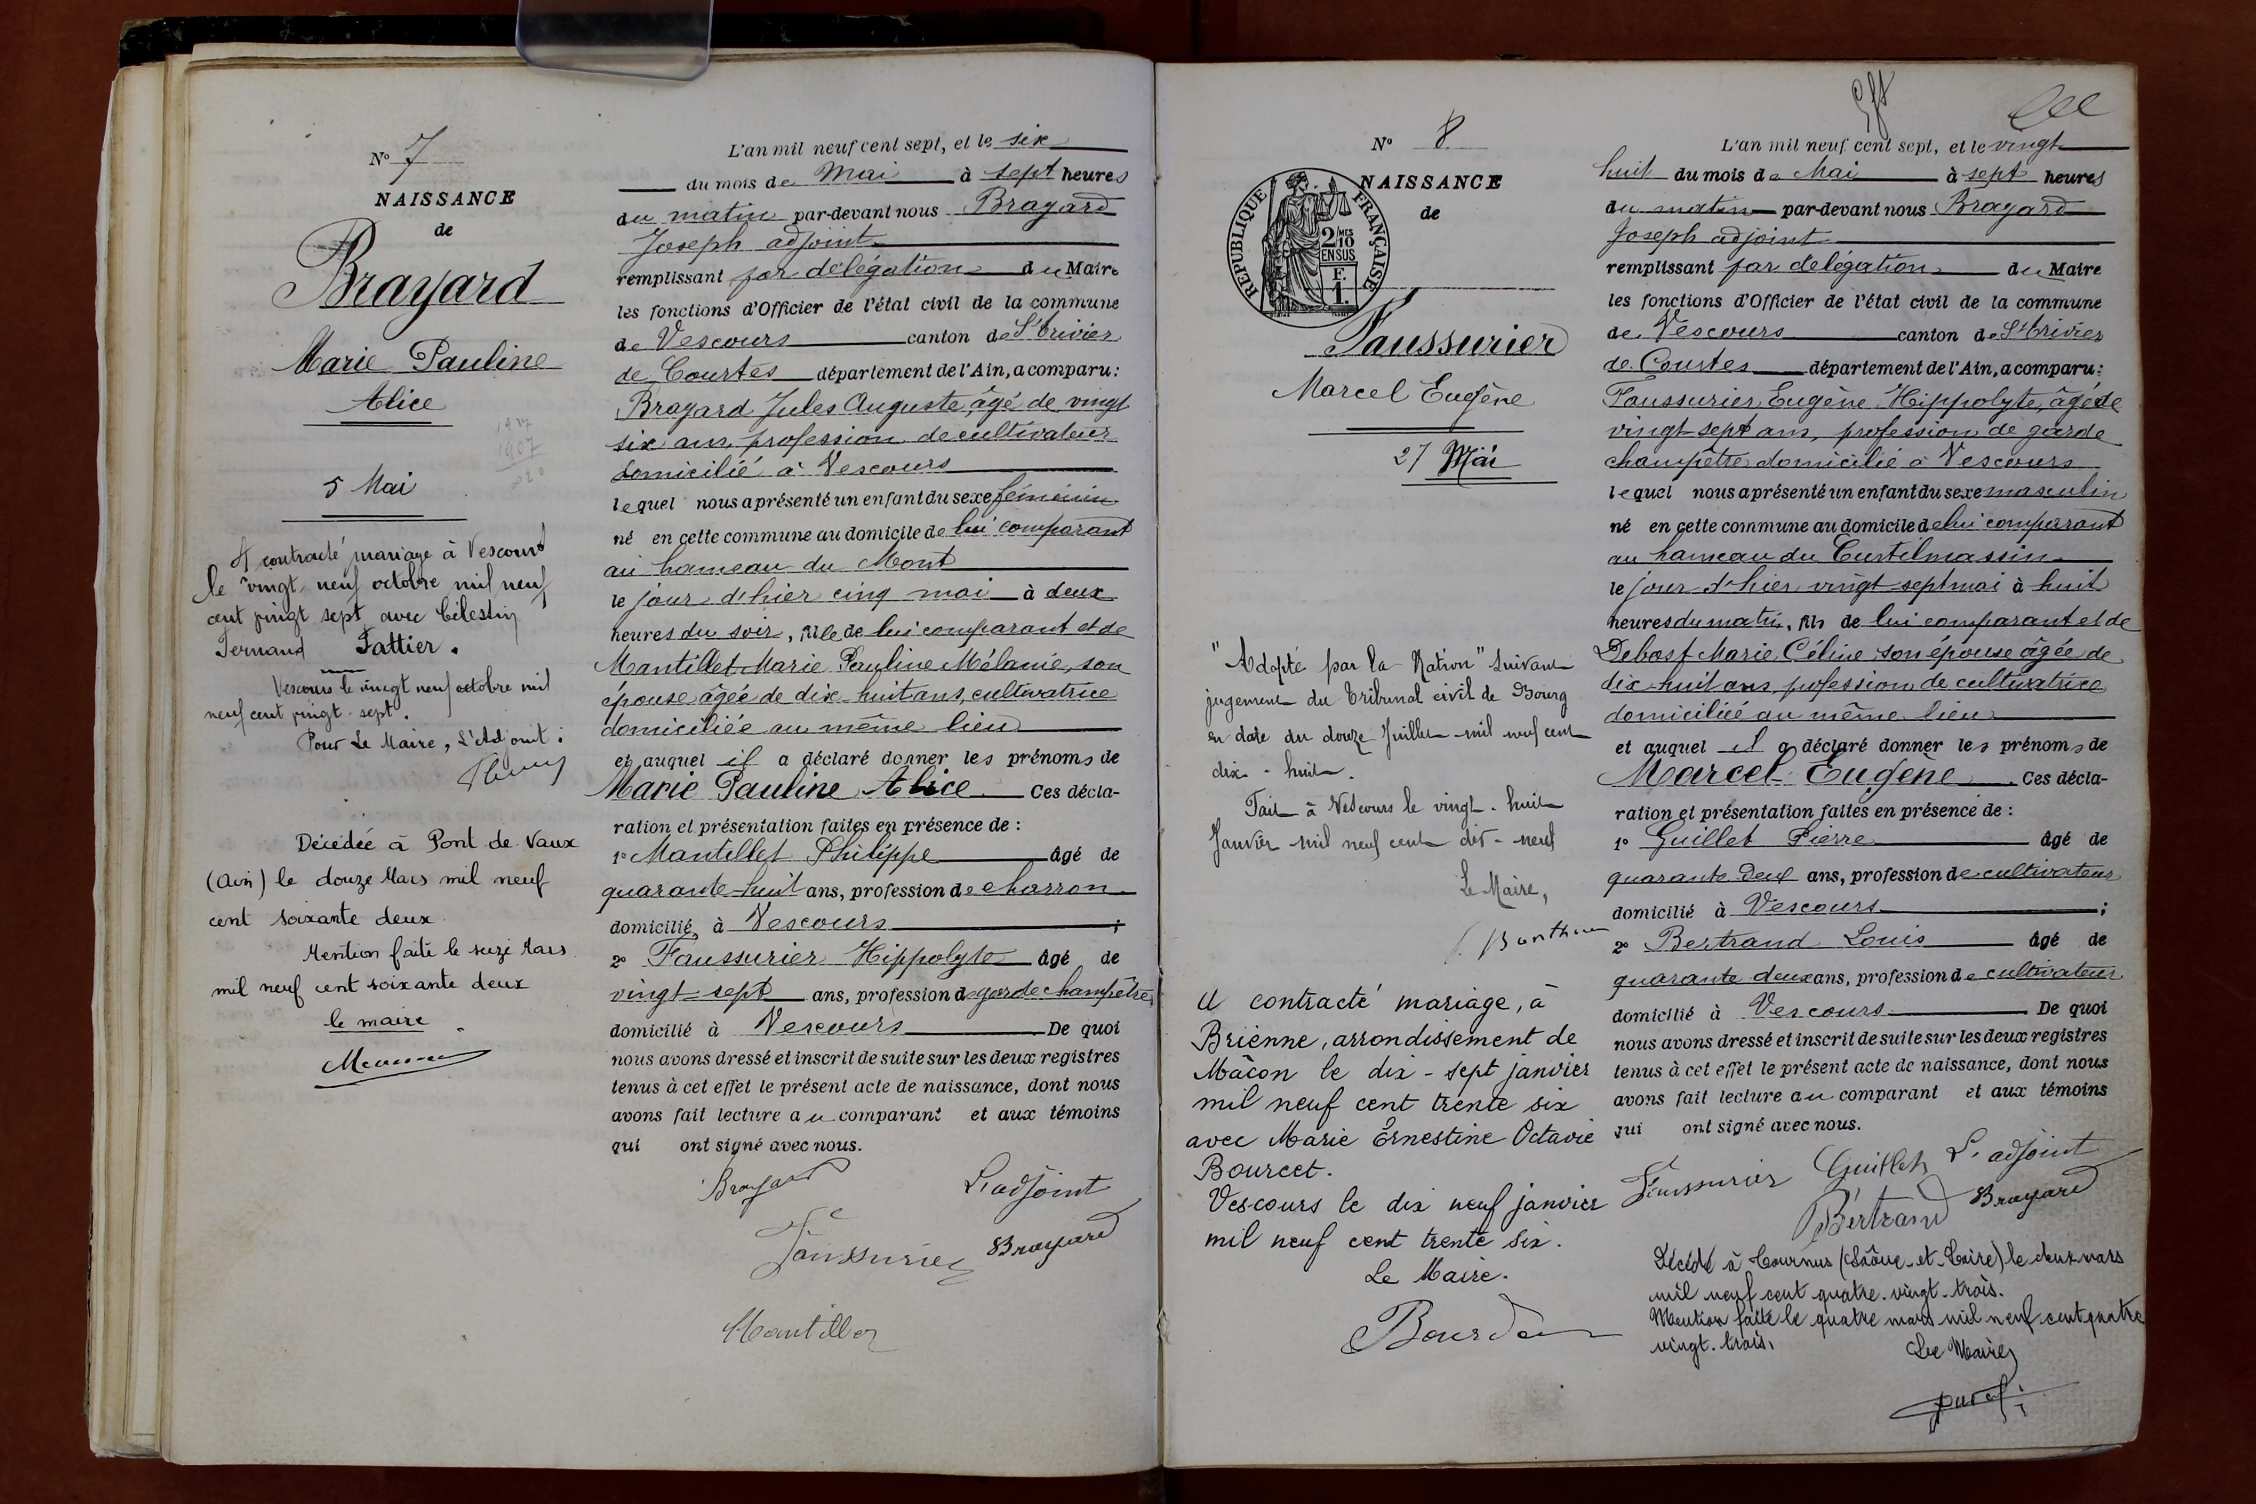 N° 7
NAISSANCE
de
Brayard
Marie Pauline
Alice
1927
1907
020
5 Mai
A contracté mariage à Vescours
le vingt neuf octobre mil neuf
cent vingt sept avec Célestin
Fernand Fattier.
Vescours le vingt neuf octobre mil
neuf cent vingt sept.
Pour Le Maire, L'Adjoint :
Décédée à Pont de Vaux
(Ain) le douze Mars mil neuf
cent soixante deux
Mention faite le seize Mars
mil neuf cent soixante deux
le maire
L'an mil neuf cent sept, et le six
du mois de Mai à sept heures
du matin par-devant nous Brayard
Joseph adjoint
remplissant par délégation du Maire
les fonctions d'Officier de l'état civil de la commune
de Vescours canton de St Trivier
de Courtes département de l'Ain, a comparu :
Brayard Jules Auguste âgé de vingt
six ans, profession de cultivateur
domicilié à Vescours
lequel nous a présenté un enfant du sexe féminin
né en cette commune au domicile de lui comparant
au hameau du Mont
le jour d'hier cinq mai à deux
heures du soir, fille de lui comparant et de
Mantillet Marie Pauline Mélanie, son
épouse âgée de dix-huit ans, cultivatrice
domiciliée au même lieu
et auquel il a déclaré donner les prénoms de
Marie Pauline Alice Ces décla-
ration et présentation faites en présence de :
1° Mantillet Philippe âgé de
quarante-huit ans, profession de charron
domicilié à Vescours ;
2° Faussurier Hippolyte âgé de
vingt-sept ans, profession de garde champêtre,
domicilié à Vescours De quoi
nous avons dressé et inscrit de suite sur les deux registres
tenus à cet effet le présent acte de naissance, dont nous
avons fait lecture au comparant et aux témoins
qui ont signé avec nous.
Brayard L'adjoint
Faussurier Brayard
Mantillet
N° 8
NAISSANCE
de
RÉPUBLIQUE FRANÇAISE
2/10 MES
EN SUS
F.
1.
Faussurier
Marcel Eugène
27 Mai
"Adopté par la Nation" suivant
jugement du Tribunal civil de Bourg
en date du douze Juillet mil neuf cent
dix-huit.
Fait à Vescours le vingt-huit
Janvier mil neuf cent dix-neuf
Le Maire,
A contracté mariage, à
Brienne, arrondissement de
Mâcon le dix-sept janvier
mil neuf cent trente six
avec Marie Ernestine Octavie
Bourcet.
Vescours le dix neuf janvier
mil neuf cent trente six.
Le Maire.
L'an mil neuf cent sept, et le vingt
huit du mois de Mai à sept heures
du matin par-devant nous Brayard
Joseph adjoint
remplissant par délégation du Maire
les fonctions d'Officier de l'état civil de la commune
de Vescours canton de St Trivier
de Courtes département de l'Ain, a comparu :
Faussurier Eugène Hippolyte, âgé de
vingt-sept ans, profession de garde
champêtre domicilié à Vescours
lequel nous a présenté un enfant du sexe masculin
né en cette commune au domicile de lui comparant
au hameau du Curtilmassin
le jour d'hier vingt-sept mai à huit
heures du matin, fils de lui comparant et de
Debost Marie Céline son épouse âgée de
dix-huit ans, profession de cultivatrice
domiciliée au même lieu
et auquel il a déclaré donner les prénoms de
Marcel Eugène Ces décla-
ration et présentation faites en présence de :
1° Guillet Pierre âgé de
quarante deux ans, profession de cultivateur
domicilié à Vescours ;
2° Bertrand Louis âgé de
quarante deux ans, profession de cultivateur
domicilié à Vescours De quoi
nous avons dressé et inscrit de suite sur les deux registres
tenus à cet effet le présent acte de naissance, dont nous
avons fait lecture au comparant et aux témoins
qui ont signé avec nous.
Faussurier Guillet L'adjoint
Bertrand Brayard
Décédé à Tournus (Saône-et-Loire) le deux mars
mil neuf cent quatre-vingt-trois.
Mention faite le quatre mars mil neuf cent quatre
vingt-trois.
Le Maire,